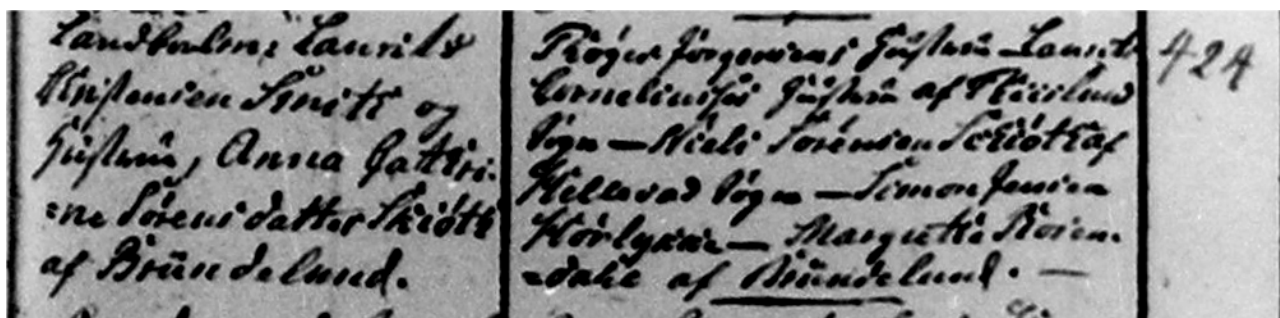 Landbolm: Laurits
Christensen Smith og
Hustrue, Anna Cathri-
:ne Sørensdatter Skiöth
af Bründelund.
Jörgensens Hustrue Laurits
Cornelius's Hustrue af
Sogn — Niels Sörensen Schiöth af
Hellevad Sogn — Simon Jensen
— Margrethe Rosen-
-dahl af Bründelund. —
424